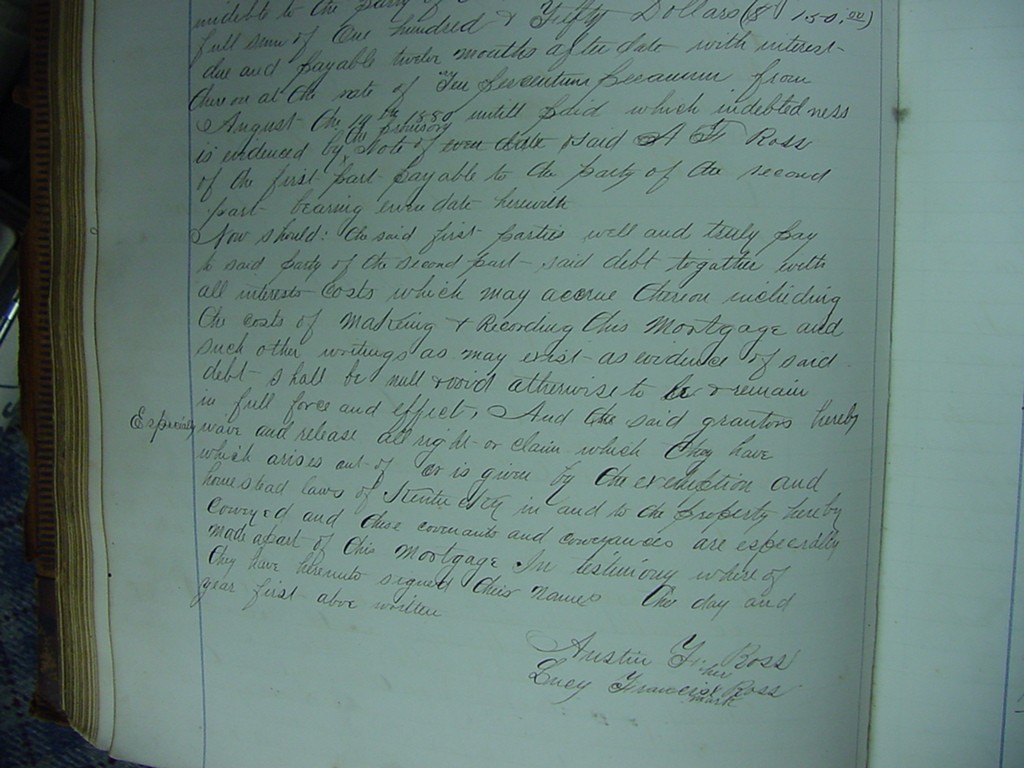 indebted to the party of
full sum of One hundred & Fifty Dollars ($ 150.00)
due and payable twelve months after date with interest
thereon at the rate of Ten percentum perannum from
August the 14th 1880 untill paid which indebtedness
is evidenced by the promisory Note of even date said A F Ross
of the first part payable to the party of the second
part bearing even date herewith
Now should: the said first parties well and truly pay
to said party of the second part said debt togather with
all interests Costs which may accrue thereon including
the costs of Making & Recording this Mortgage and
such other writings as may exist as evidence of said
debt shall be null & void otherwise to be & remain
in full force and effect, And the said grantors hereby
Especially wave and release all right or claim which they have
which arises out of or is given by the exemption and
homestead laws of Kentucky in and to the property hereby
Conveyed and these covenants and conveyances are especially
made apart of this Mortgage In testimony where of
they have hereunto signed their names the day and
year first above written
Austin F. Ross
Lucy Frances her x mark Ross